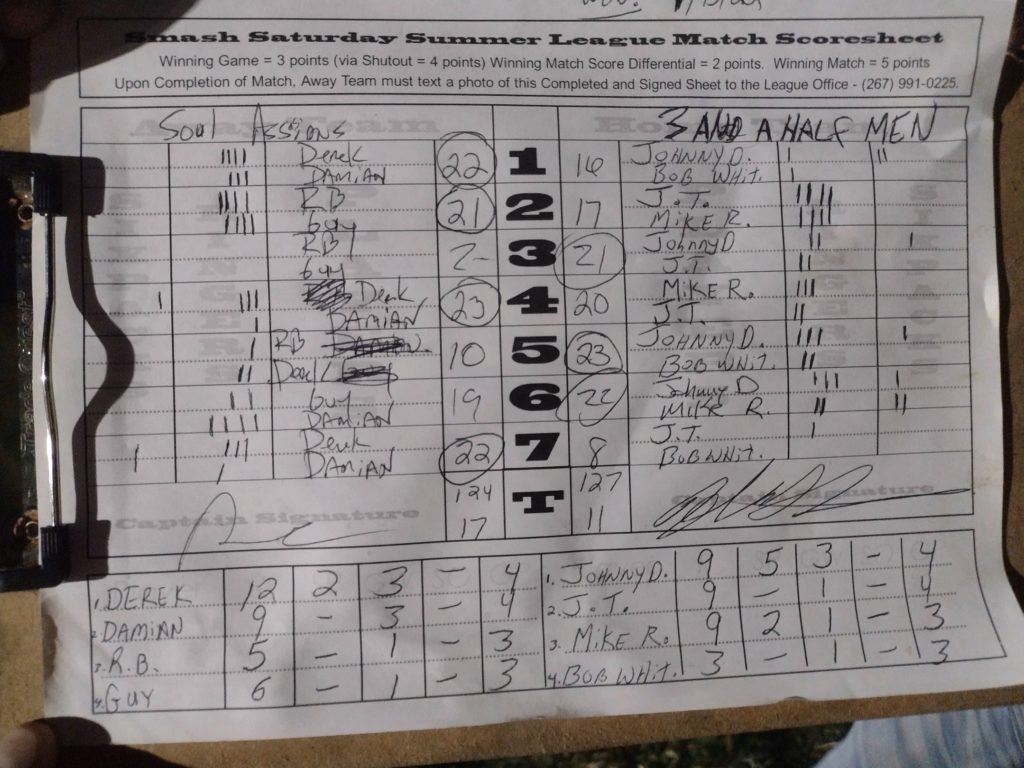 Smash Saturday Summer League Match Scoresheet
Winning Game = 3 points (via Shutout = 4 points) Winning Match Score Differential = 2 points. Winning Match = 5 points
Upon Completion of Match, Away Team must text a photo of this Completed and Signed Sheet to the League Office - (267) 991-0225.
Soul Assions 3 AND A HALF MEN
Derek 22 1 16 JOHNNY D.
DAMIAN BOB WHIT.
RB 21 2 17 J.T.
Guy MIKE R.
RB 2 3 21 Johnny D
Guy J.T.
Derek 23 4 20 MIKE R.
DAMIAN J.T.
RB 10 5 23 JOHNNY D.
Derek BOB WHIT.
Guy 19 6 22 Johnny D
DAMIAN MIKE R.
Derek 22 7 8 J.T.
DAMIAN BOB WHIT.
124 T 127
17 11
Captain Signature Captain Signature
1. DEREK 12 2 3 - 4 1. JOHNNY D. 9 5 3 - 4
2. DAMIAN 9 - 3 - 4 2. J.T. 9 - 1 - 4
3. R.B. 5 - 1 - 3 3. MIKE R. 9 2 1 - 3
4. GUY 6 - 1 - 3 4. BOB WHIT. 3 - 1 - 3